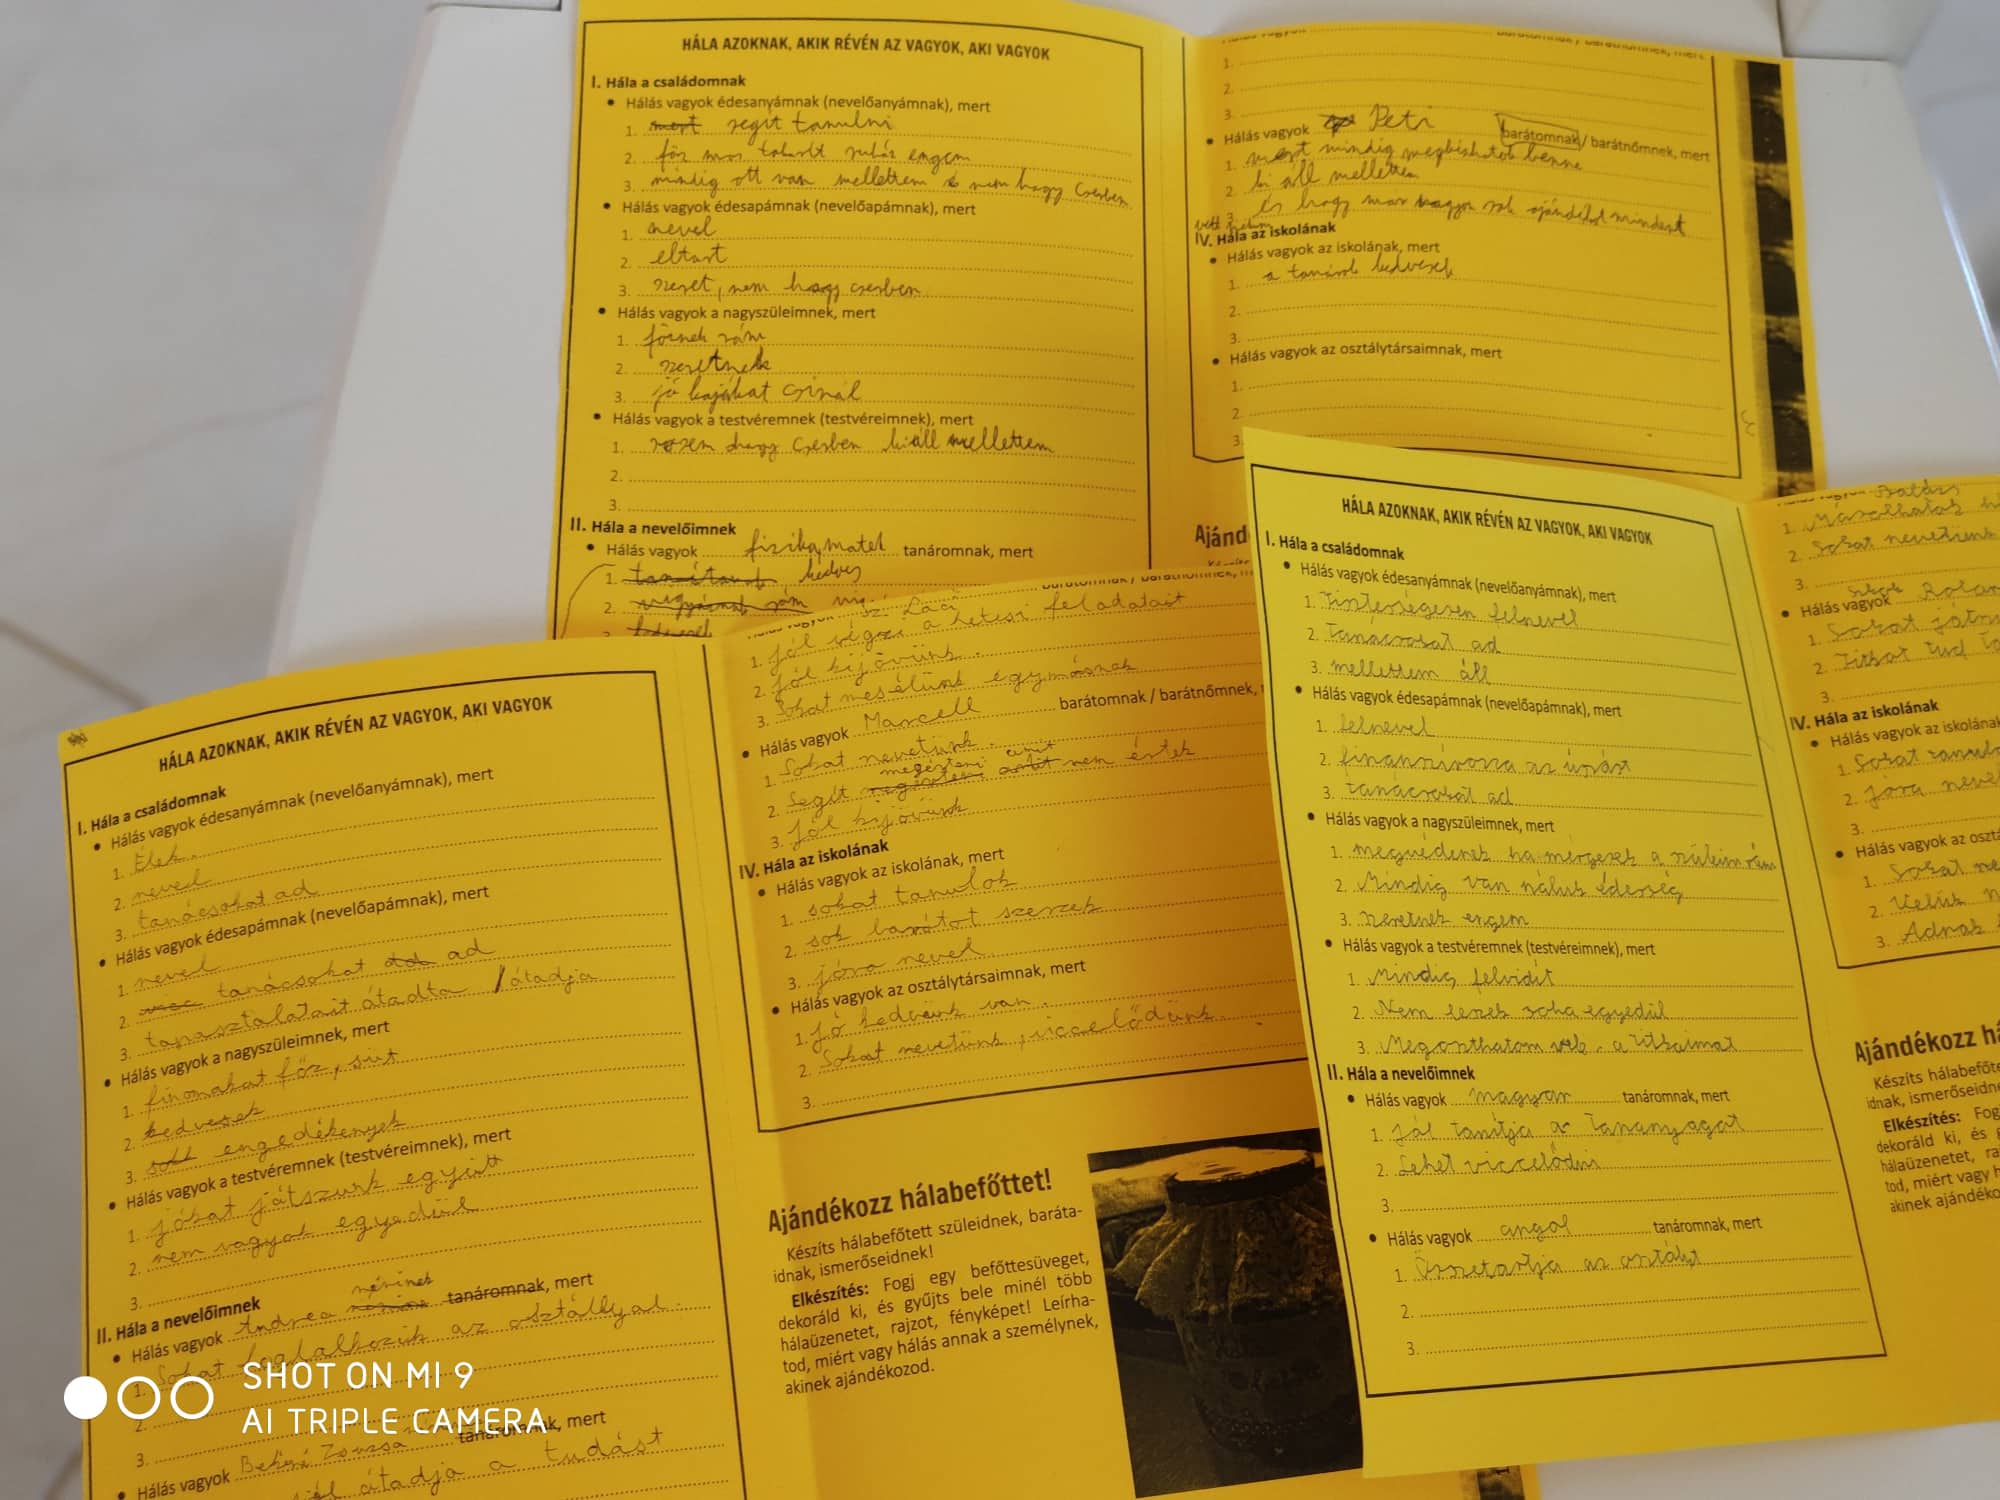 HÁLA AZOKNAK, AKIK RÉVÉN AZ VAGYOK, AKI VAGYOK
I. Hála a családomnak
• Hálás vagyok édesanyámnak (nevelőanyámnak), mert
1. mert segit tanulni
2. főz mos takarit ruház engem
3. mindig ott van mellettem és nem hagy cserben
• Hálás vagyok édesapámnak (nevelőapámnak), mert
1. nevel
2. eltart
3. szeret, nem hagy cserben
• Hálás vagyok a nagyszüleimnek, mert
1. főznek rám
2. szeretnek
3. jó kajákat csinál
• Hálás vagyok a testvéremnek (testvéreimnek), mert
1. cserben kiáll mellettem
2.
3.
II. Hála a nevelőimnek
• Hálás vagyok fizika, matek tanáromnak, mert
1. kedves
2.
1.
2.
3.
• Hálás vagyok Peti barátomnak / barátnőmnek, mert
1. mert mindig megbízhatok benne
2. ki áll mellettem
3. és hogy már nagyon sok ajándékot mindent
vett nekem
IV. Hála az iskolának
• Hálás vagyok az iskolának, mert
1. a tanárok kedvesek
2.
3.
• Hálás vagyok az osztálytársaimnak, mert
1.
2.
3.
Ajánd
HÁLA AZOKNAK, AKIK RÉVÉN AZ VAGYOK, AKI VAGYOK
I. Hála a családomnak
• Hálás vagyok édesanyámnak (nevelőanyámnak), mert
1. Élek.
2. nevel
3. tanácsokat ad
• Hálás vagyok édesapámnak (nevelőapámnak), mert
1. nevel
2. tanácsokat ad
3. tapasztalatait átadta / átadja
• Hálás vagyok a nagyszüleimnek, mert
1. finomakat főz, süt
2. kedvesek
3. engedékenyek
• Hálás vagyok a testvéremnek (testvéreimnek), mert
1. jókat játszunk együtt
2. nem vagyok egyedül
3.
II. Hála a nevelőimnek
• Hálás vagyok Andrea néninek tanáromnak, mert
1. Sokat foglalkozik az osztállyal.
2.
3.
• Hálás vagyok Zsuzsa tanáromnak, mert
átadja a tudást
Laci
1. Jól végzi a hetesi feladatait
2. Jól kijövünk.
3. Sokat mesélünk egymásnak
• Hálás vagyok Marcell barátomnak / barátnőmnek,
1. Sokat nevetünk.
2. Segít megérteni amit nem értek
3. Jól kijövünk
IV. Hála az iskolának
• Hálás vagyok az iskolának, mert
1. sokat tanulok
2. sok barátot szerzek
3. jóra nevel
• Hálás vagyok az osztálytársaimnak, mert
1. Jó kedvünk van.
2. Sokat nevetünk, viccelődünk.
3.
Ajándékozz hálabefőttet!
Készíts hálabefőtett szüleidnek, baráta-
idnak, ismerőseidnek!
Elkészítés: Fogj egy befőttesüveget,
dekoráld ki, és gyűjts bele minél több
hálaüzenetet, rajzot, fényképet! Leírha-
tod, miért vagy hálás annak a személynek,
akinek ajándékozod.
HÁLA AZOKNAK, AKIK RÉVÉN AZ VAGYOK, AKI VAGYOK
I. Hála a családomnak
• Hálás vagyok édesanyámnak (nevelőanyámnak), mert
1. Tisztességesen felnevel
2. Tanácsokat ad
3. mellettem áll
• Hálás vagyok édesapámnak (nevelőapámnak), mert
1. felnevel
2. finanszírozza az úszást
3. tanácsokat ad
• Hálás vagyok a nagyszüleimnek, mert
1. megvédenek ha mérgesek a szüleim rám
2. Mindig van náluk édesség
3. Szeretnek engem
• Hálás vagyok a testvéremnek (testvéreimnek), mert
1. Mindig felvidít
2. Nem leszek soha egyedül
3. Megoszthatom vele a titkaimat
II. Hála a nevelőimnek
• Hálás vagyok magyar tanáromnak, mert
1. Jól tanítja a Tananyagot
2. Lehet viccelődni
3.
• Hálás vagyok angol tanáromnak, mert
1. Összetartja az osztályt
2.
3.
Balázs
1.
2. Sokat nevetünk
3.
• Hálás vagyok
1. Sokat
2. Titkot tud
3.
IV. Hála az iskolának
• Hálás vagyok az iskolána
1. Sokat
2. Jóra neve
3.
• Hálás vagyok az osztá
1. Sokat ne
2. Velük
3. Adnak
Ajándékozz h
Készíts hálabefőte
idnak, ismerőseidne
Elkészítés: Fog
dekoráld ki, és g
hálaüzenetet, ra
tod, miért vagy h
akinek ajándéko
SHOT ON MI 9
AI TRIPLE CAMERA